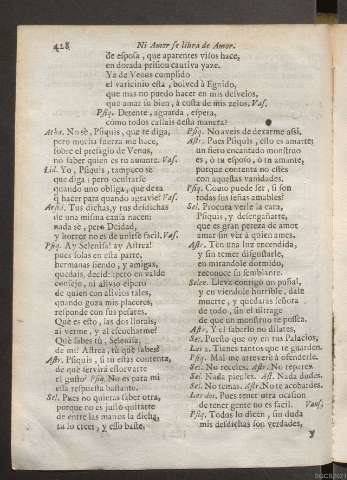 428
Ni Amor se libra de Amor.
de esposa, que aparentes visos hace,
en dorada prision cautiva yaze.
Ya de Venus cumplido
el vaticinio està, bolved à Egnido,
que mas no puedo hacer en mis desvelos,
que amar su bien, à costa de mis zelos. Vas.
Psiq. Detente, aguarda, espera,
còmo todos callais desta manera?
Atha. No sè, Psiquis, que te diga,
pero mucha fuerza me hace,
sobre el presagio de Venus,
no saber quien es tu amante. Vas.
Lid. Yo, Psiquis, tampoco sè
que diga; pero ocultarse
quando uno obliga, què dexa
que hacer para quando agravie? Vas.
Arsid. Tus dichas, y tus desdichas
de una misma causa nacen:
nada sè, pero Deidad,
y horror no es de unirse facil. Vas.
Psiq. Ay Selenisa! ay Astrea!
pues solas en esta parte,
hermanas siendo, y amigas,
quedais, decid: pero en valde
consejo, ni alivio espero
de quien con alivos tales,
quando goza mis placeres,
responde con sus pesares.
Què es esto, las dos llorais,
al verme, y al escucharme?
Què sabes tù, Selenisa,
de mi? Astrea, tù què sabes?
Astr. Psiquis, si tu estàs contenta,
de què servirà estorvarte
el gusto? Psiq. No es para mi
essa respuesta bastante.
Sel. Pues no quieras saber otra,
porque no es justo quitarte
de entre las manos la dicha,
tu lo crees, y esso baste.
Psiq. No aveis de dexarme assi.
Astr. Pues Psiquis, esto es amarte;
un fiero encantado monstruo
es, ò tu esposo, ò tu amante,
porque contenta no estès
con aquestas vanidades.
Psiq. Còmo puede ser, si son
todas sus señas amables?
Sel. Procura verle la cara,
Psiquis, y desengañarte,
que es gran pereza de amor
amar sin vèr à quien ames.
Astr. Ten una luz encendida,
y sin temer disgustarle,
en mirandole dormido,
reconoce su semblante.
Selen. Lleva contigo un puñal,
y en viendole horrible, dale
muerte, y quedaràs señora
de todo, sin el ultrage
de que un monstruo te possea.
Astr. Y el saberlo no dilates.
Sel. Puesto que oy en tus Palacios,
Las 2. Tienes tantos que te guarden.
Psiq. Mal me atreverè à ofenderle.
Sel. No receles. Astr. No repares
Sel. Nada pierdes. Ast. Nada dudes.
Sel. No temas. Astr. No te acobardes.
Las dos. Pues tener otra ocasion
de tener gente no es facil. Vans.
Psiq. Todos lo dicen, sin duda
mis desdichas son verdades,
y